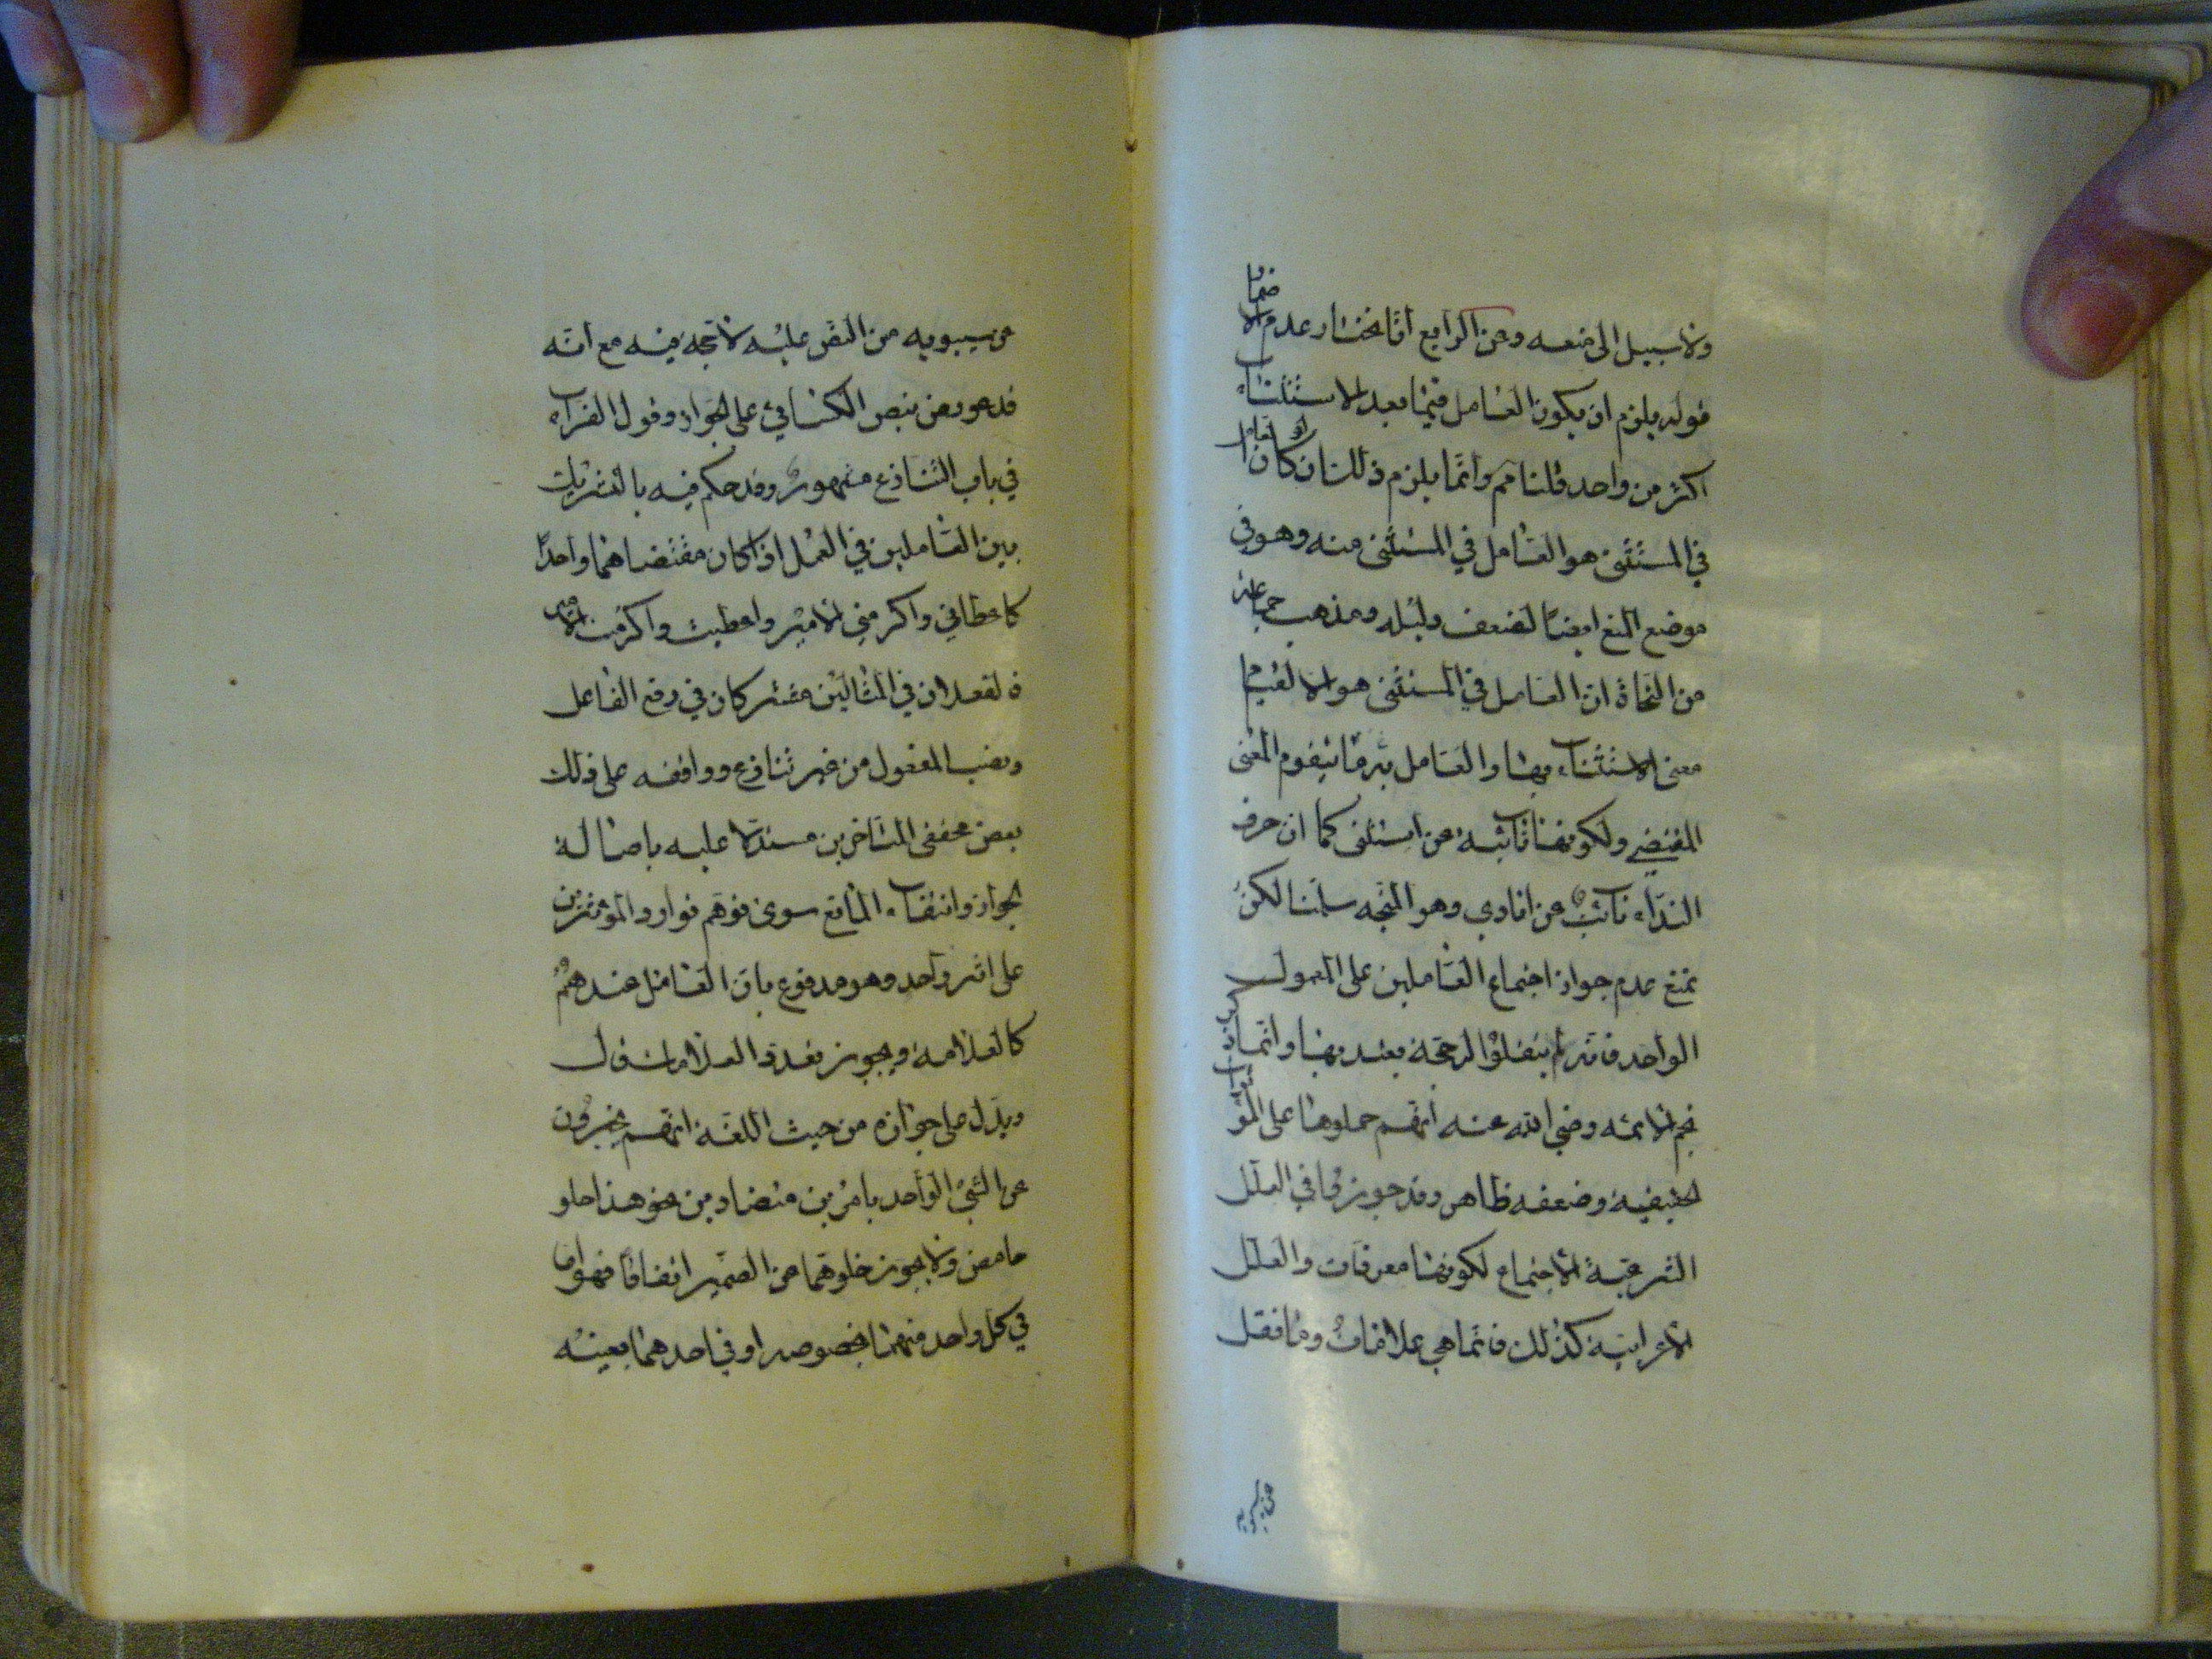 ولا سبيل الى منعه وعن الرابع انا نختار عدم الاضمار
قوله يلزم ان يكون العامل فيما بعد الاستثناء
اكثر من واحد قلنا مم وانما يلزم ذلك ان لو كان العامل
في المستثنى هو العامل في المستثنى منه وهو في
موضع المنع ايضا لضعف دليله ومذهب جماعة
من النحاة ان العامل في المستثنى هو الا لقيام
معنى الاستثناء بها والعامل ما به يتقوم المعنى
المقتضي ولكونها نائبة عن استثنى كما ان حرف
النداء نائب عن انادي وهو المتجه سلمنا لكن
نمنع عدم جواز اجتماع العاملين على المعمول
الواحد فانه لم ينقلوا له حجة يعتد بها وانما ذكر
نجم الائمه رضي الله عنه انهم حملوها على المؤثرات
الحقيقية وضعفه ظاهر وقد جوزوا في العلل
الشرعية الاجتماع لكونها معرفات والعلل
الاعرابية كذلك فانما هي علامات وما نقل
عن سيبويه
عن سيبويه من النص عليه لا حجة فيه مع انه
قد عورض بنص الكسائي على الجواز وقول الفراء
في باب التنازع مشهور وقد حكم فيه بالتشريك
بين العاملين في العمل اذا كان مقتضاهما واحدا
كاعطاني واكرمني الامير واعطيت واكرمت الامير
فالفعلان في المثالين مشتركان في رفع الفاعل
ونصب المفعول من غير تنازع ووافقه على ذلك
بعض محققي المتاخرين مستدلا عليه باصالة
الجواز وانتفاء المانع سوى توهم توارد المؤثرين
على اثر واحد وهو مدفوع بان العامل عندهم
كالعلامة ويجوز تعدد العلامات قال
ويدل على جوازه من حيث اللغة انهم يخبرون
عن الشئ الواحد بامرين متضادين نحو هذا حلو
حامض ولا يجوز خلوهما عن الضمير اتفاقا فهو اما
في كل واحد منهما بخصوصه او في احدهما بعينه